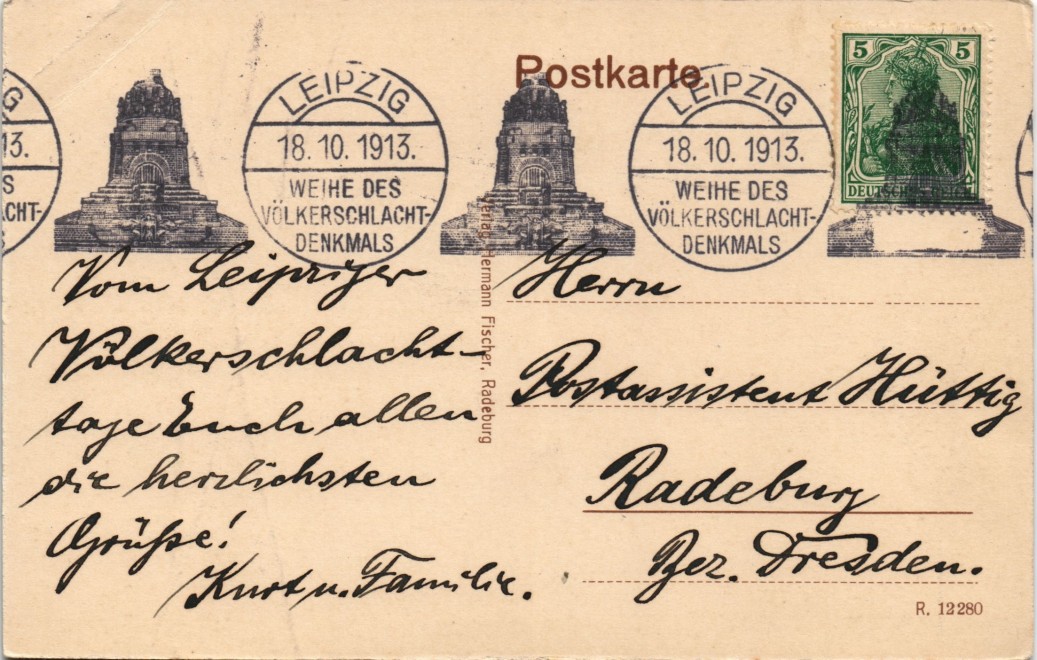 Postkarte
5 5
DEUTSCHES REICH
G
13.
S
ACHT-
LEIPZIG
18. 10. 1913.
WEIHE DES
VÖLKERSCHLACHT-
DENKMALS
LEIPZIG
18. 10. 1913.
WEIHE DES
VÖLKERSCHLACHT-
DENKMALS
Vom Leipziger
Völkerschlacht-
tage Euch allen
die herzlichsten
Grüße!
Kurt u. Familie.
Verlag Hermann Fischer, Radeburg
Herrn
Postassistent Hüttig
Radeburg
Bez. Dresden.
R. 12280